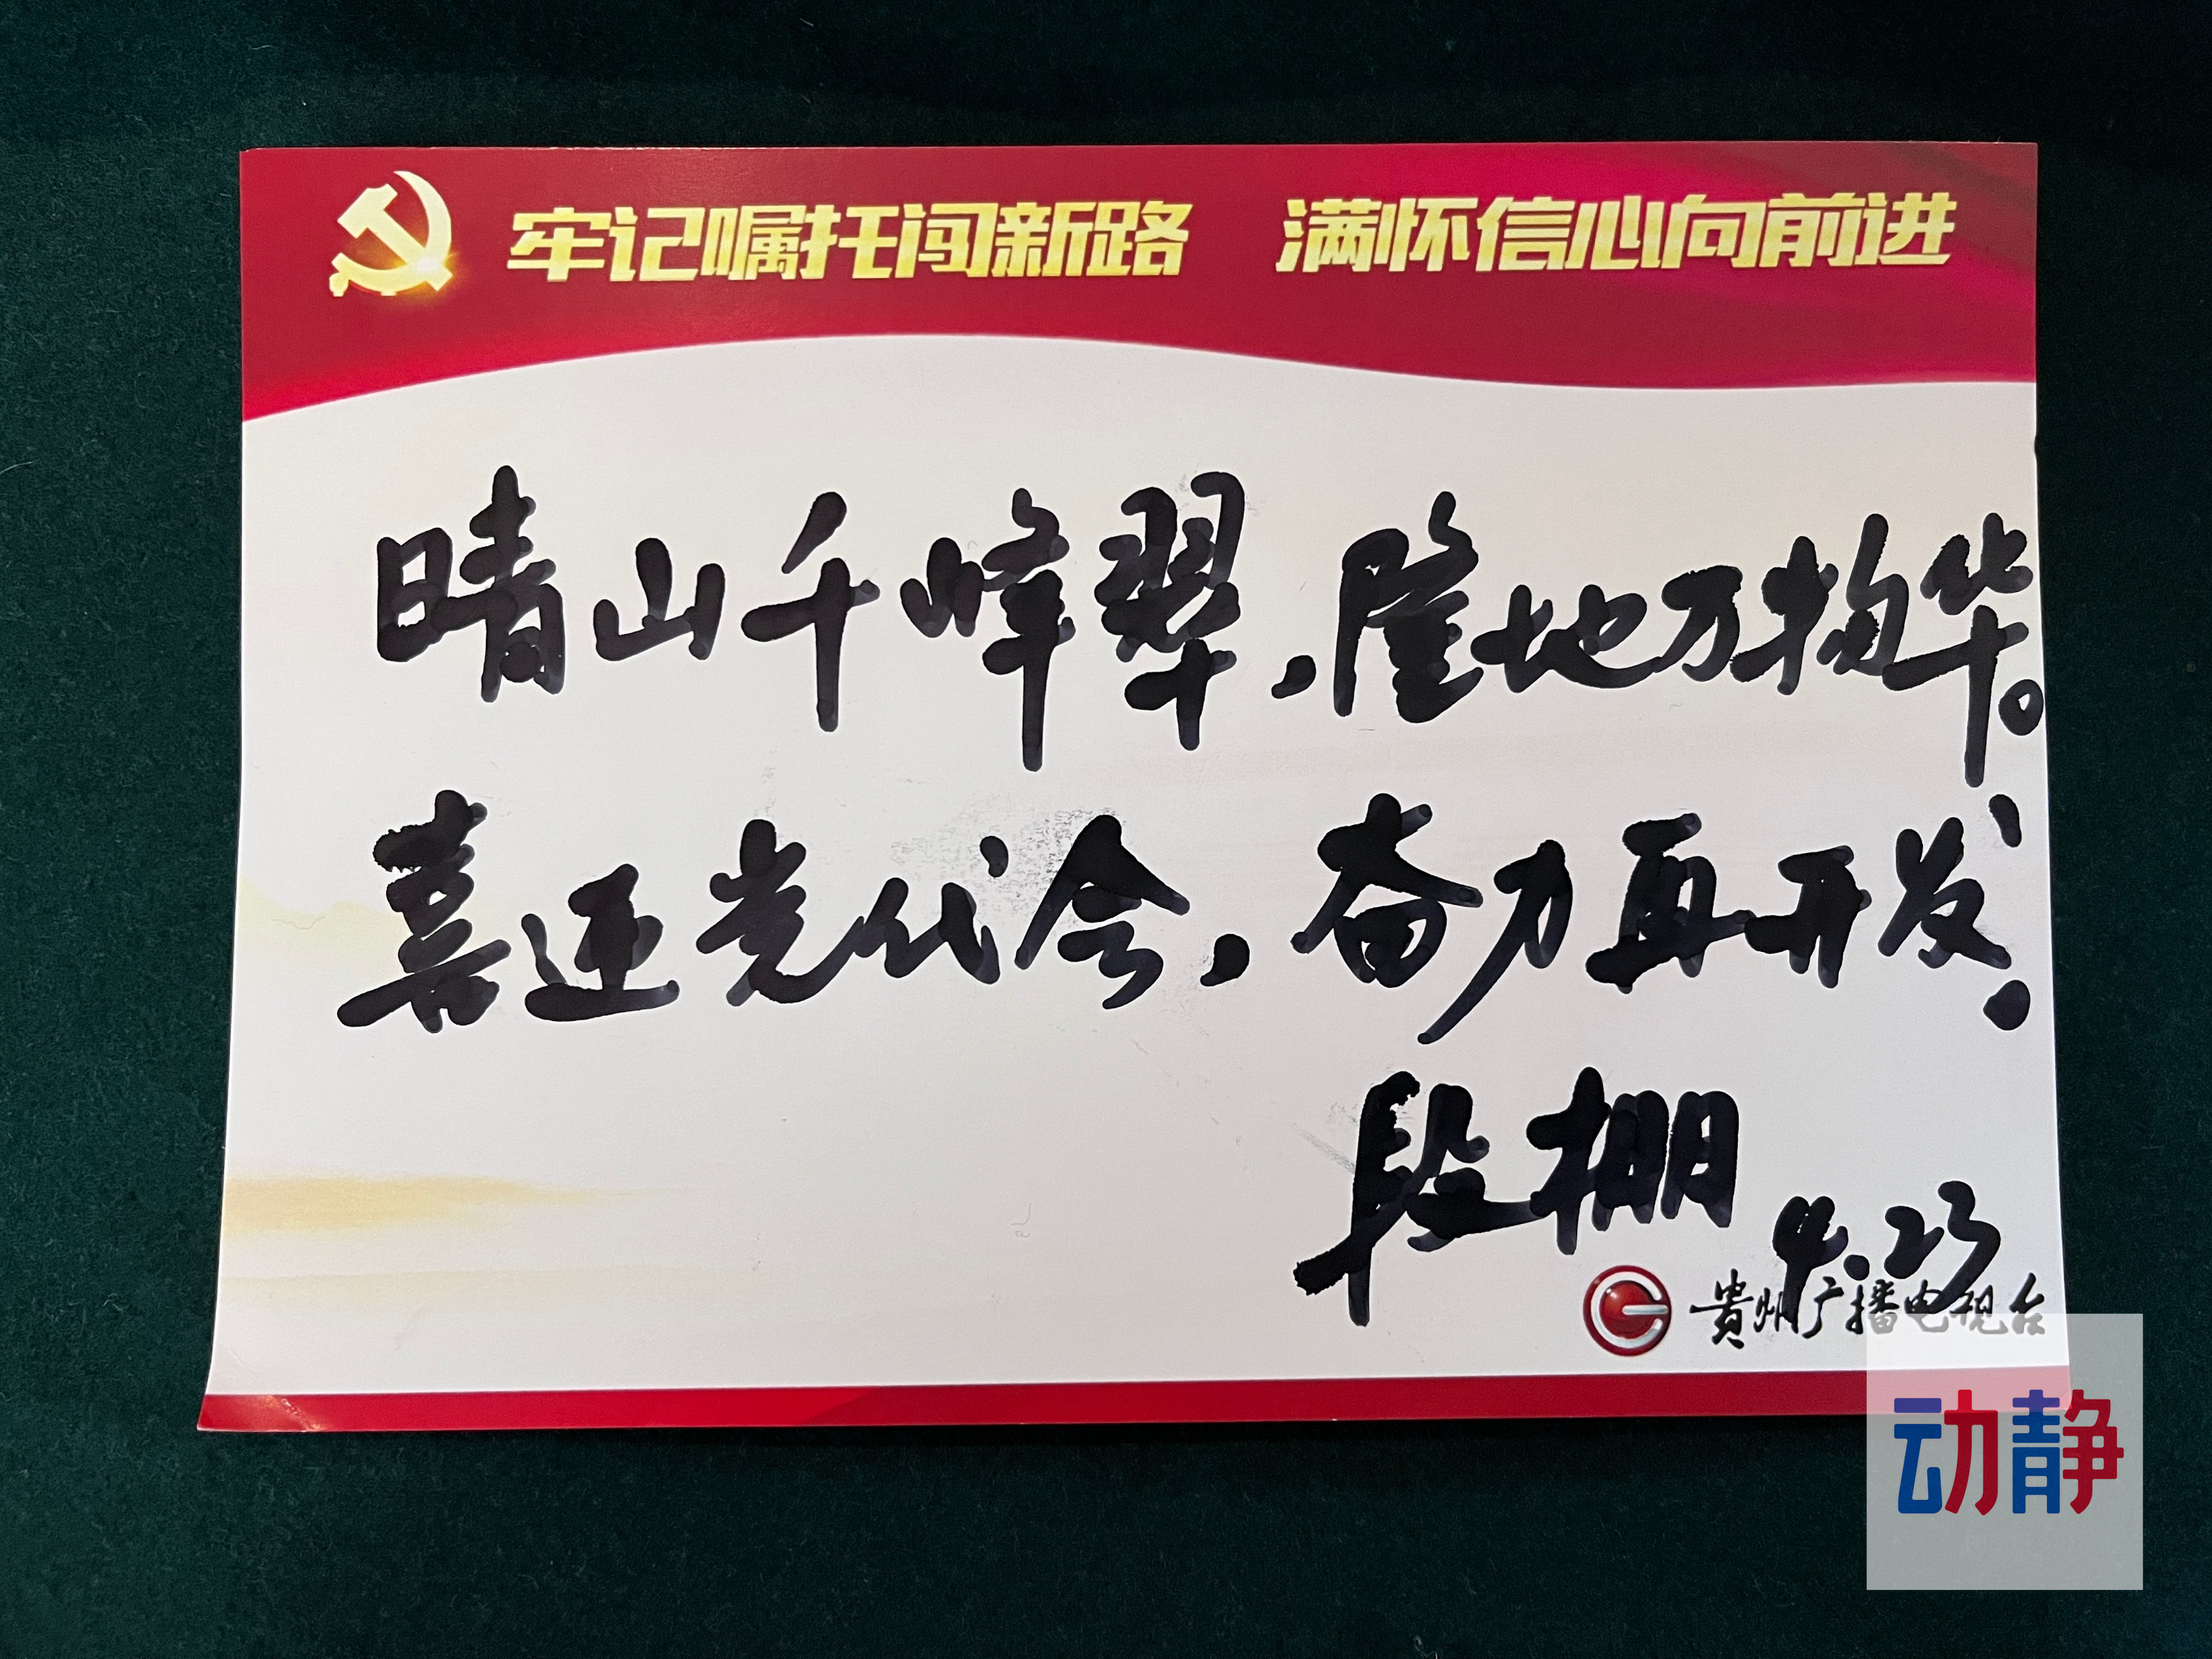 牢记嘱托闯新路 满怀信心向前进
晴山千峰翠,隆地万物华。
喜迎党代会,奋力再开发!
段棚
4.23
貴州广播电视台
动静